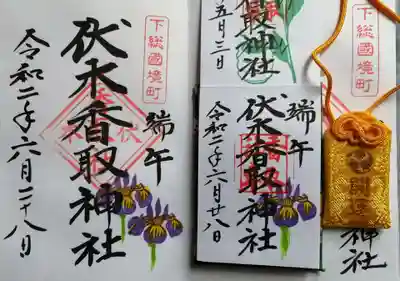 下総國境町
端午
伏木香取神社
令和二年六月二十八日
五月三日
香取神社
端午
伏木香取神社
令和二年六月廿八日
下総國境町
神社